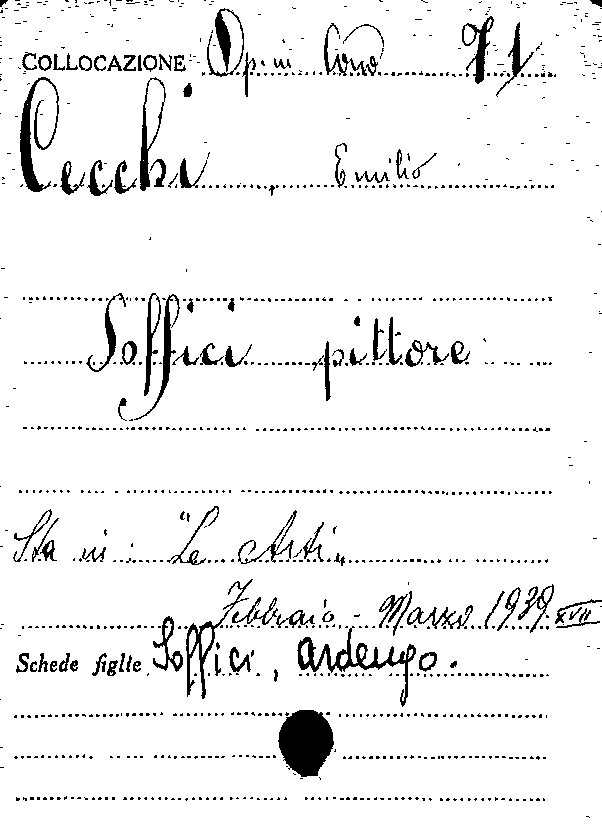 COLLOCAZIONE Op. in Cons 71
Cecchi, Emilio
Soffici pittore
Sta in: "Le Arti„
Febbraio - Marzo 1939 XVII
Schede figlie Soffici, Ardengo.